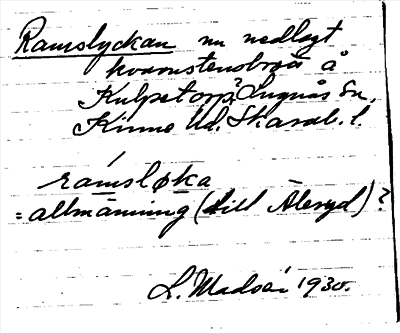 Ramslyckan nu nedlagt
kvarnstensbrott å
Kulpetorp, Lugnås Sn,
Kinne Hd. Skarab. l.
ramsløka
= allmänning (till Åleryd)?
L. Modsäi 1930.